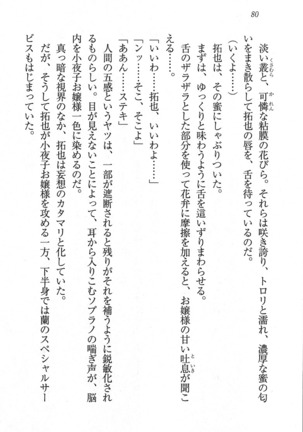 80
淡い叢と、可憐な粘膜の花びら。それらは咲き誇り、トロリと濡れ、濃厚な蜜の匂
いをまき散らして拓也の唇を、舌を待っているのだ。
(いくよ……)
拓也は、その蜜にしゃぶりついた。
まずは、ゆっくりと味わうように舌を這いずりまわらせる。
舌のザラザラとした部分を使って花弁に摩擦を加えると、お嬢様の甘い吐息が聞こ
える……。
「いいわ……拓也、いいわよ……」
「ンッ……そこ、そこよ」
「ああん……ステキ」
人間の五感というヤツは、一部が遮断されると残りがそれを補うように鋭敏化され
るものらしい。目が見えないことによって、耳から入りこむソプラノの喘ぎ声が、脳
内を小夜子お嬢様一色に染めるのだ。
真っ暗な視界のなか、拓也は妄想のカタマリと化していた。
だが、そうして拓也が小夜子お嬢様を攻める一方、下半身では蘭のスペシャルサー
ビスもはじまっていた。